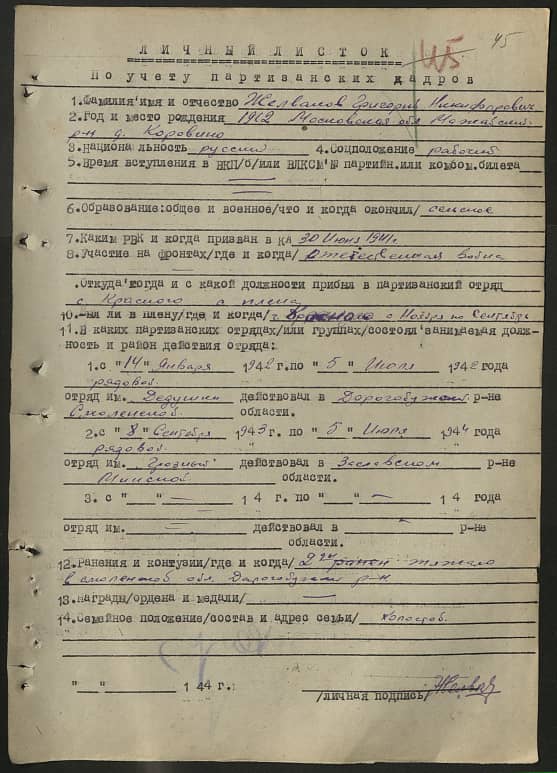 45
ЛИЧНЫЙ ЛИСТОК
По учету партизанских кадров
1.Фамилия имя и отчество Григорий Никифорович
2.Год и место рождения 1912 Московская обл Можайский
р-н д. Коровино
3.Национальность русский 4.Соцположение рабочий
5.Время вступления в ВКП/б/или ВЛКСМ № партийн.или комсом.билета
6.Образование:общее и военное/что и когда окончил/ сельское
7.Каким РВК и когда призван в КА 30 Июня 1941г
8.Участие на фронтах/где и когда/ Отечественная война
Откуда тогда и с какой должности прибыл в партизанский отряд
с. Красного плена
10.Был ли в плену/где и когда/ с Ноября по Сентябрь
11.В каких партизанских отрядах/или группах/состоял занимаемая долж-
ность и район действия отряда:
1.с "14" Января 1942 г.по "5" Июля 1942 года
рядовой
отряд им. Дедушки действовал в р-не
Смоленской области.
2.с "8" Сентября 1943 г. по "5" Июля 1944 года
рядовой
отряд им. Грозный действовал в Заславском р-не
Минской области.
3. с "__" 1 4 г. по "__" 1 4 года
отряд им. действовал в р-не
области.
12.Ранения и контузии/где и когда/ ранен тяжело
в смоленской обл. р-н
13.Награды/ордена и медали/
14.Семейное положение/состав и адрес семьи/ холостой
"__" 1 44 г.
/личная подпись/